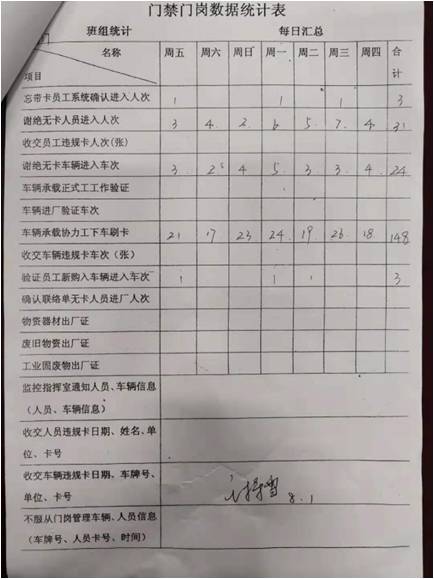 门禁门岗数据统计表
班组统计 每日汇总
名称 周五 周六 周日 周一 周二 周三 周四 合计
项目
忘带卡员工系统确认进入人次 1 1 1 3
谢绝无卡人员进入人次 3 4 2 6 5 7 4 31
收交员工违规卡人次(张)
谢绝无卡车辆进入车次 3 2 4 5 3 3 4 24
车辆承载正式工工作验证
车辆进厂验证车次
车辆承载协力工下车刷卡 21 17 23 24 19 26 18 148
收交车辆违规卡车次(张)
验证员工新购入车辆进入车次 1 1 1 3
确认联络单无卡人员进厂人次
物资器材出厂证
废旧物资出厂证
工业固废物出厂证
监控指挥室通知人员、车辆信息
(人员、车辆信息)
收交人员违规卡日期、姓名、单
位、卡号
收交车辆违规卡日期、车牌号、
单位、卡号
8.1
不服从门岗管理车辆、人员信息
(车牌号、人员卡号、时间)